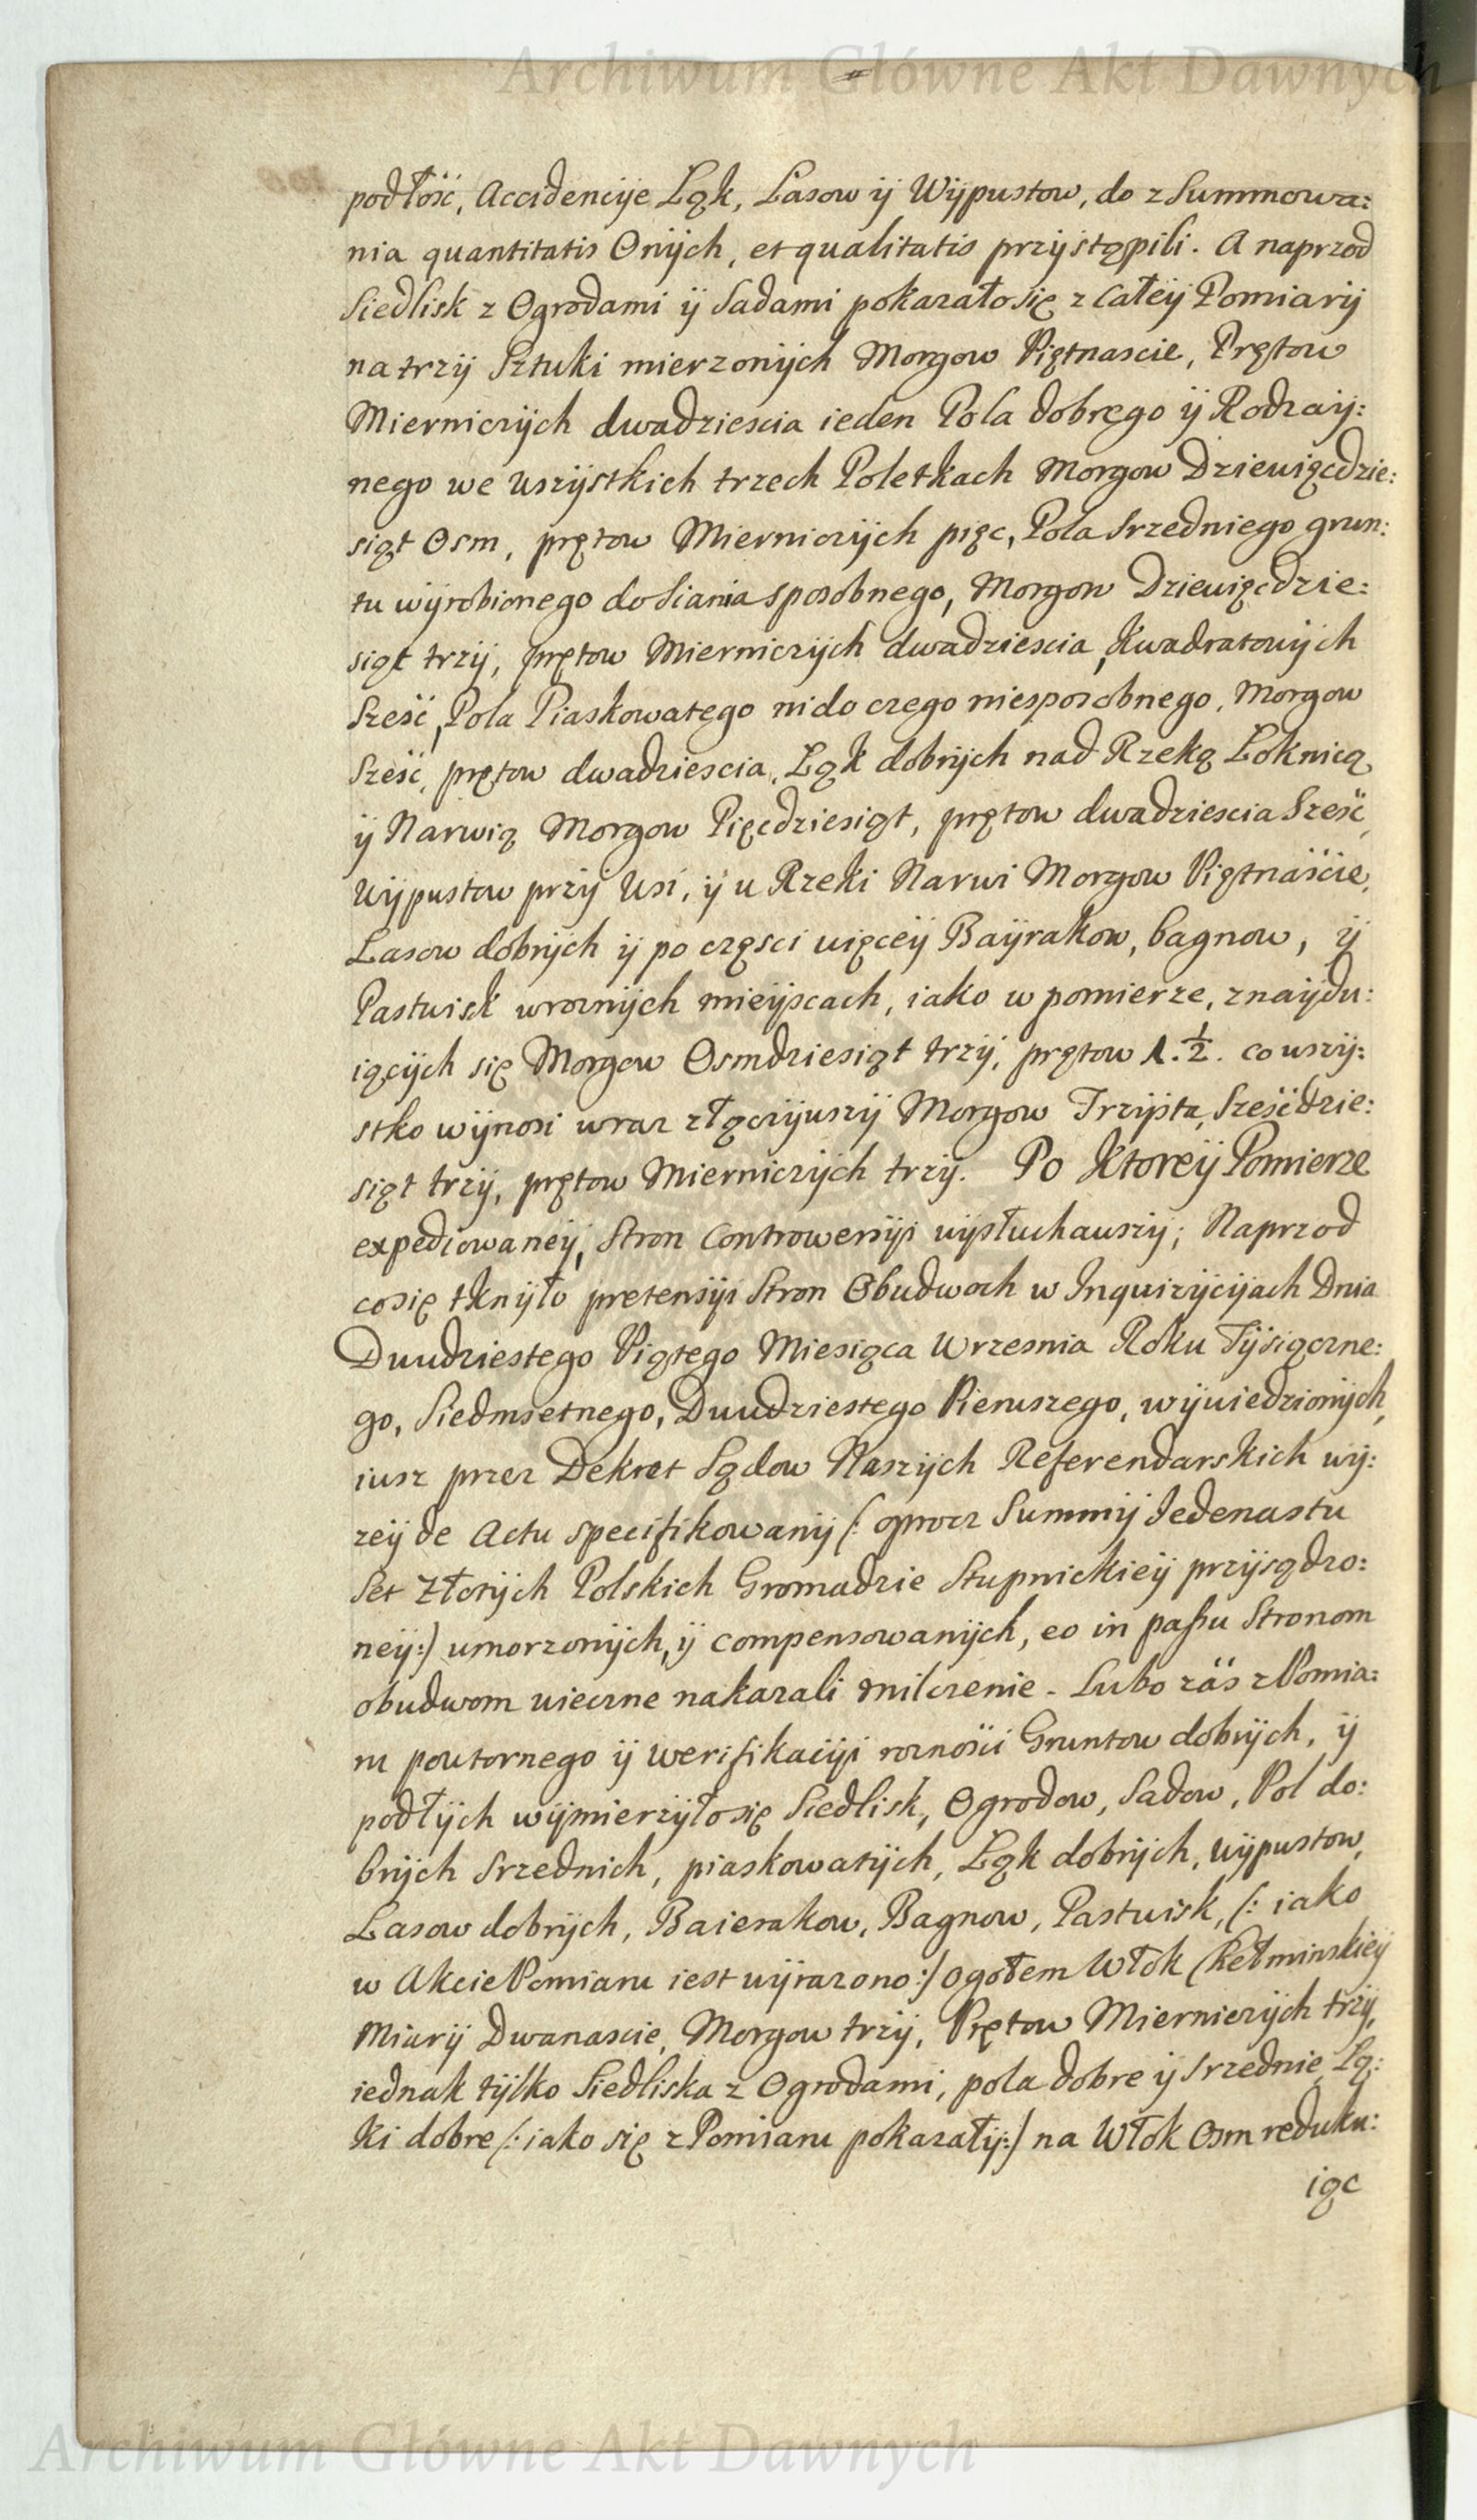 Archiwum Główne Akt Dawnych
podłość, Accidencÿe Łąk, Lasow ÿ Wÿpustow, do zSummowa:
nia quantitatis Onÿch, et qualitatis przÿstąpili. A naprzod
Siedlisk z Ogrodami ÿ Sadami pokazało się z całeÿ Pomiarÿ
na trzÿ Sztuki mierzonÿch Morgow Piętnascie, Prętow
Mierniczÿch dwadziescia ieden Pola dobrego ÿ Rodzaÿ:
nego we wszÿstkich trzech Poletkach Morgow Dziewięcdzie:
siąt Osm, prętow Mierniczÿch pięc, Pola Srzedniego grun:
tu wÿrobionego do Siania sposobnego, Morgow Dziewięcdzie:
siąt trzÿ, prętow Mierniczÿch dwadziescia, Kwadratowÿch
Sześć, Pola Piaskowatego nido czego niesposobnego, Morgow
Sześć, prętow dwadziescia, Łąk dobrÿch nad Rzeką Łoknicą
ÿ Narwią Morgow Pięcdziesiąt, prętow dwadziescia Sześć,
Wÿpustow przÿ Wsi, ÿ u Rzeki Narwi Morgow Piętnaście,
Lasow dobrÿch ÿ po częsci więceÿ Baÿrakow, bagnow, ÿ
Pastwisk w roznÿch mieÿscach, iako w pomierze, znaÿdu:
iącÿch się Morgow Osmdziesiąt trzÿ, prętow 1. ½. co wszÿ:
stko wÿnosi wraz złączÿwszÿ Morgow Trzÿsta, Sześćdzie:
siąt trzÿ, prętow Mierniczÿch trzÿ. Po Ktoreÿ Pomierze
expediowaneÿ, Stron Controwersÿi wÿsłuchawszÿ; Naprzod
co się tknÿło pretensÿi Stron Obudwoch w Inquizÿcÿach Dnia
Dwudziestego Piątego Miesiąca Wrzesnia Roku Tÿsiączne:
go, Siedmsetnego, Dwudziestego Pierwszego, wÿwiedzionÿch,
iusz przez Dekret Sądow Naszÿch Referendarskich wÿ:
zeÿ de Actu specifikowanÿ (: oprocz Summÿ Jedenastu
Set Złotÿch Polskich Gromadzie Stupnickieÿ przÿsądzo:
neÿ:) umorzonÿch, ÿ compensowanÿch, eo in passu Stronom
obudwom wieczne nakazali milczenie. Lubo zäs z Pomia:
ru powtornego ÿ werifikacÿi roznośći Gruntow dobrÿch, ÿ
podłÿch wÿmierzÿło się Siedlisk, Ogrodow, Sadow, Pol do:
brÿch Srzednich, piaskowatÿch, Łąk dobrÿch, wÿpustow,
Lasow dobrÿch, Baierakow, Bagnow, Pastwisk, (: iako
w Akcie Pomiaru iest wÿrazono:) ogołem Włok Chełminskieÿ
Miarÿ Dwanascie, Morgow trzÿ, Prętow Mierniczÿch trzÿ,
iednak tÿlko Siedliska z Ogrodami, pola dobre ÿ srzednie, Łą:
ki dobre (: iako się z Pomiaru pokazałÿ:) na Włok Osm reduku:
iąc
Archiwum Główne Akt Dawnych